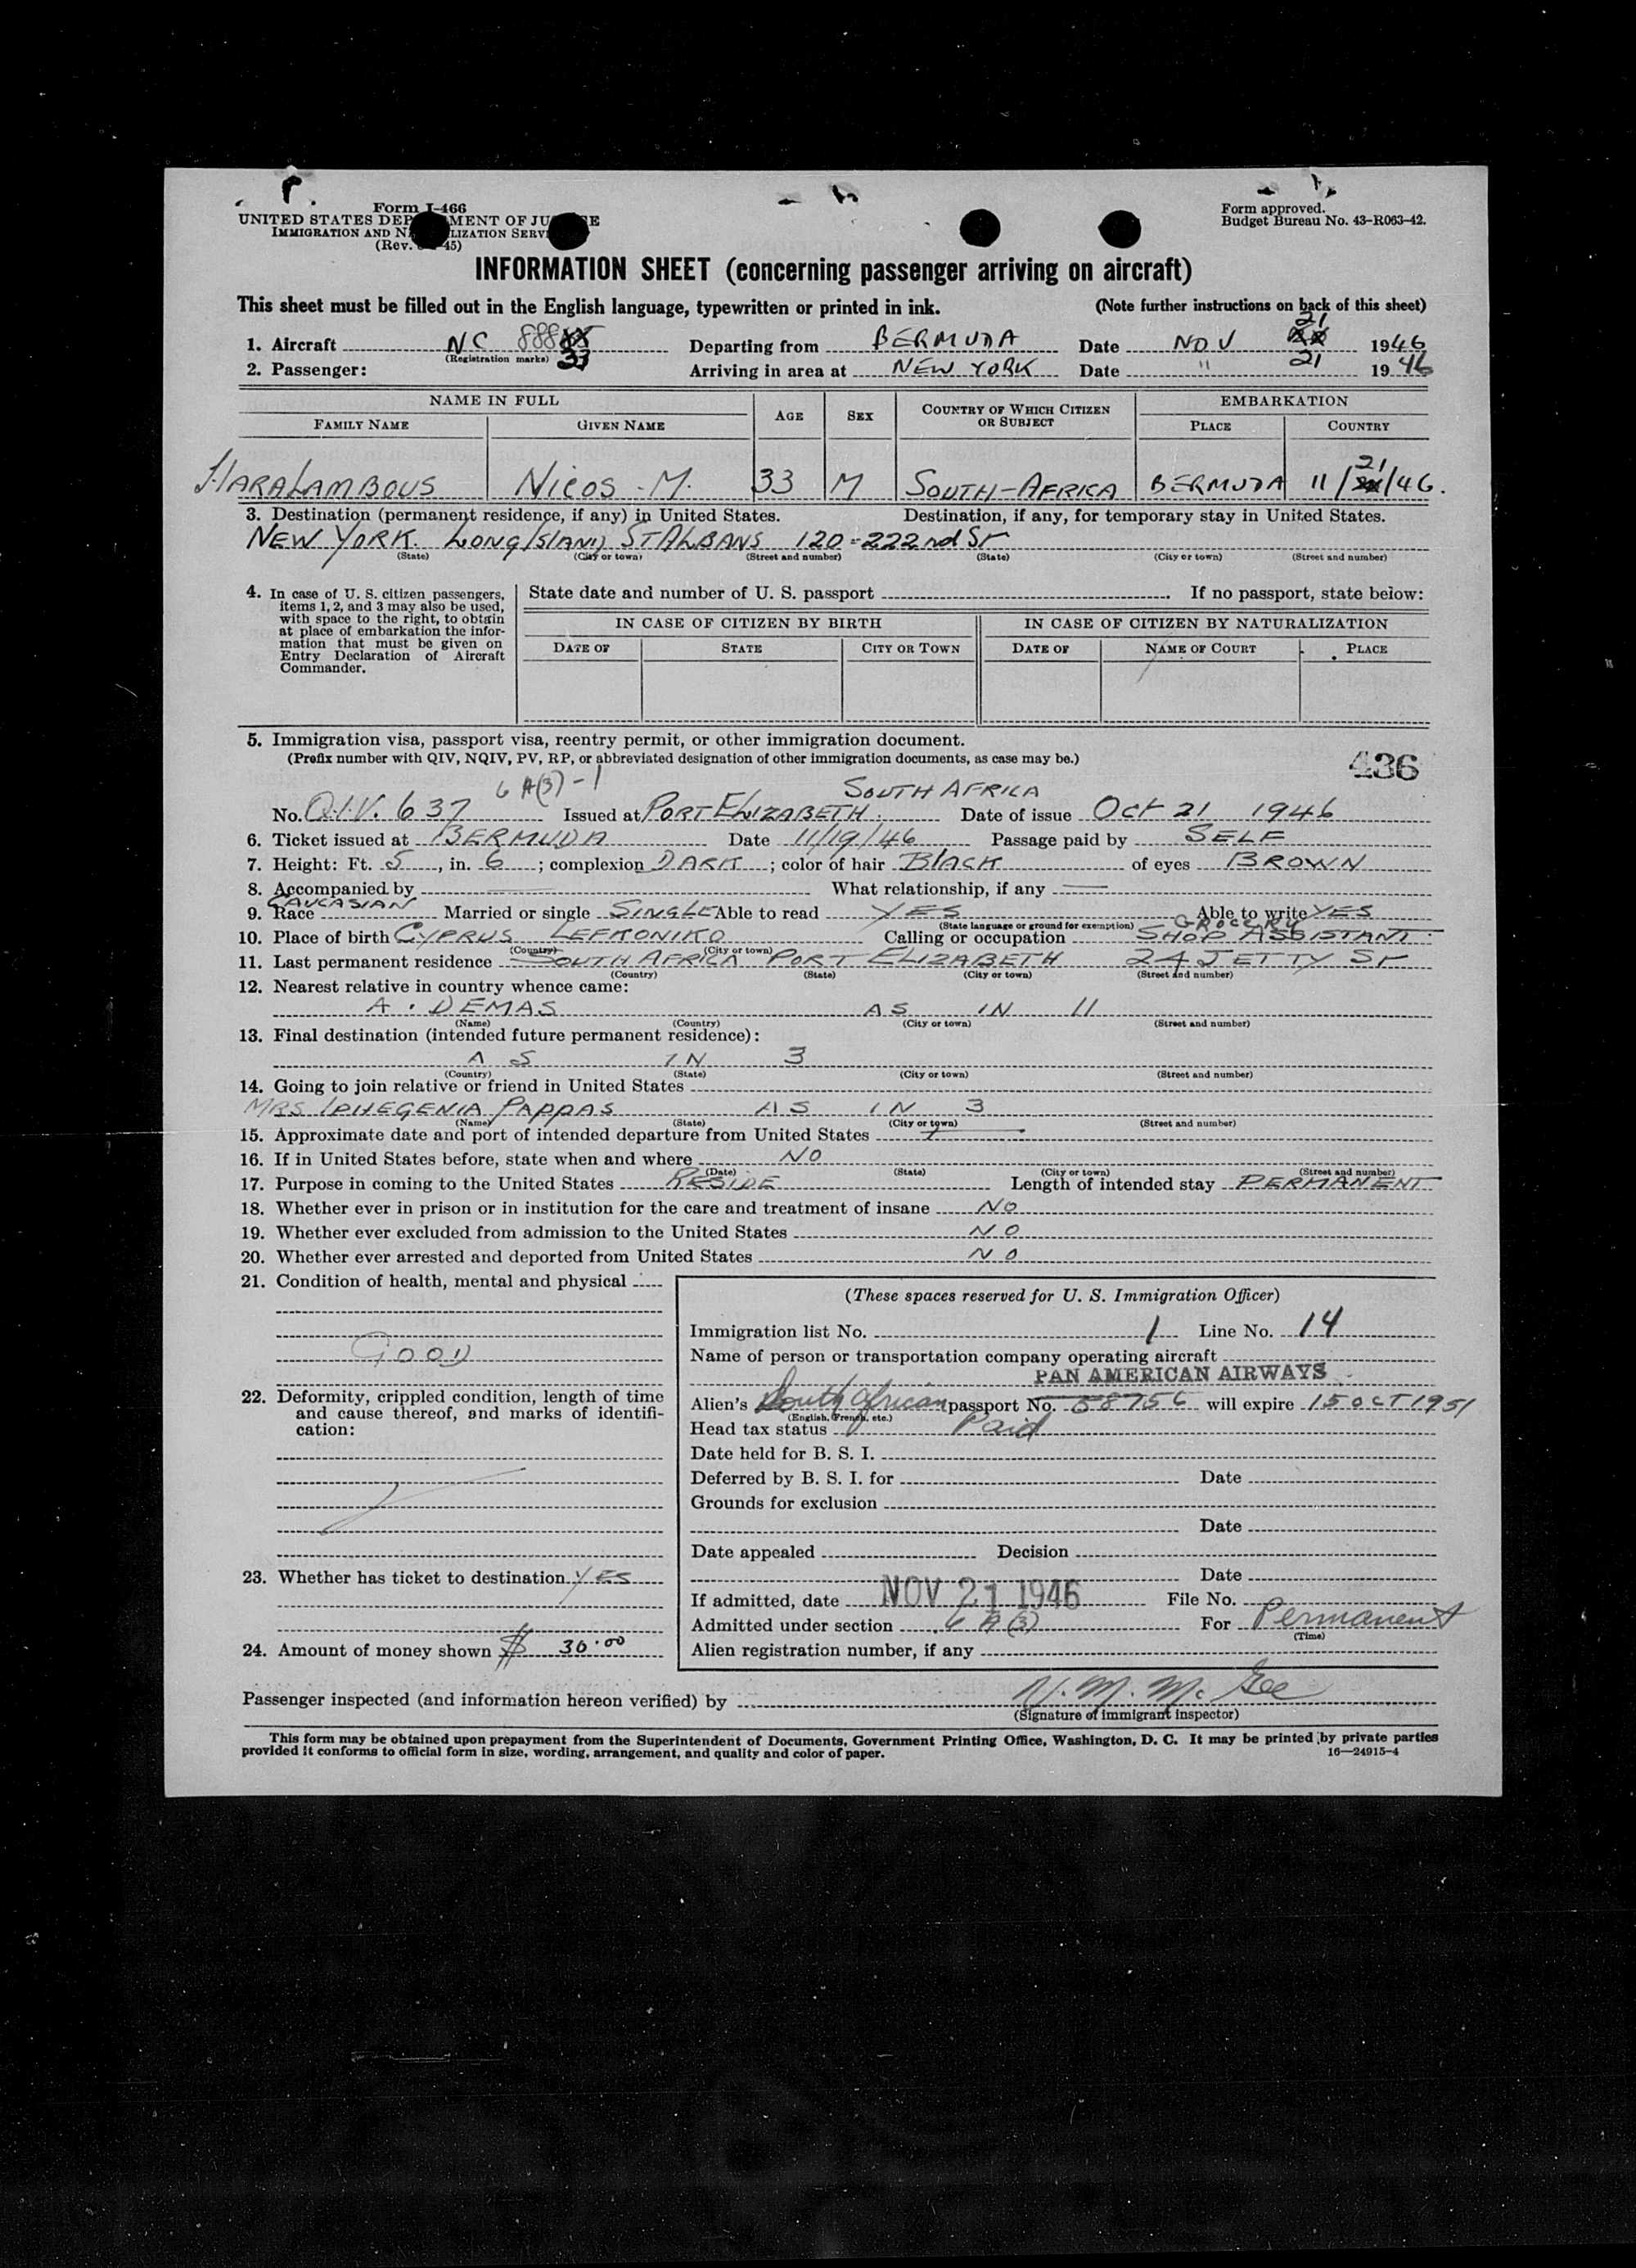 Form I-466
UNITED STATES DEP MENT OF JU E
IMMIGRATION AND N LIZATION SERV
(Rev. 45)
Form approved.
Budget Bureau No. 43-R063-42.
INFORMATION SHEET (concerning passenger arriving on aircraft)
This sheet must be filled out in the English language, typewritten or printed in ink. (Note further instructions on back of this sheet)
21
1. Aircraft NC 888 Departing from BERMUDA Date NOV 1946
(Registration marks) 33
2. Passenger: Arriving in area at NEW YORK Date " 21 1946
NAME IN FULL AGE SEX COUNTRY OF WHICH CITIZEN OR SUBJECT EMBARKATION
FAMILY NAME GIVEN NAME PLACE COUNTRY
21
HARALAMBOUS NICOS . M. 33 M SOUTH-AFRICA BERMUDA 11/ /46.
3. Destination (permanent residence, if any) in United States. Destination, if any, for temporary stay in United States.
NEW YORK. LONG ISLAND ST ALBANS 120-222nd St
(State) (City or town) (Street and number) (State) (City or town) (Street and number)
4. In case of U. S. citizen passengers,
items 1, 2, and 3 may also be used,
with space to the right, to obtain
at place of embarkation the infor-
mation that must be given on
Entry Declaration of Aircraft
Commander.
State date and number of U. S. passport . If no passport, state below:
IN CASE OF CITIZEN BY BIRTH IN CASE OF CITIZEN BY NATURALIZATION
DATE OF STATE CITY OR TOWN DATE OF NAME OF COURT PLACE
5. Immigration visa, passport visa, reentry permit, or other immigration document.
(Prefix number with QIV, NQIV, PV, RP, or abbreviated designation of other immigration documents, as case may be.)
436
6 A(3)-1 SOUTH AFRICA
No. Q.I.V. 637 Issued at PORT ELIZABETH. Date of issue Oct 21 1946
6. Ticket issued at BERMUDA Date 11/19/46 Passage paid by SELF
7. Height: Ft. 5, in. 6; complexion DARK; color of hair BLACK of eyes BROWN
8. Accompanied by What relationship, if any
9. Race CAUCASIAN Married or single SINGLE Able to read YES Able to write YES
(State language or ground for exemption)
GROCERY
10. Place of birth CYPRUS LEFKONIKO Calling or occupation SHOP ASSISTANT
(Country) (City or town)
11. Last permanent residence SOUTH AFRICA PORT ELIZABETH 24 JETTY St
(Country) (State) (City or town) (Street and number)
12. Nearest relative in country whence came:
A. DEMAS AS IN 11
(Name) (Country) (City or town) (Street and number)
13. Final destination (intended future permanent residence):
AS IN 3
(Country) (State) (City or town) (Street and number)
14. Going to join relative or friend in United States
MRS IPHEGENIA PAPPAS AS IN 3
(Name) (State) (City or town) (Street and number)
15. Approximate date and port of intended departure from United States
16. If in United States before, state when and where NO
(Date) (State) (City or town) (Street and number)
17. Purpose in coming to the United States RESIDE Length of intended stay PERMANENT
18. Whether ever in prison or in institution for the care and treatment of insane NO
19. Whether ever excluded from admission to the United States NO
20. Whether ever arrested and deported from United States NO
21. Condition of health, mental and physical
GOOD
22. Deformity, crippled condition, length of time
and cause thereof, and marks of identifi-
cation:
23. Whether has ticket to destination YES
24. Amount of money shown $ 30.00
(These spaces reserved for U. S. Immigration Officer)
Immigration list No. 1 Line No. 14
Name of person or transportation company operating aircraft
PAN AMERICAN AIRWAYS
Alien's South African passport No. 58756 will expire 15 OCT 1951
(English, French, etc.)
Head tax status Paid
Date held for B. S. I.
Deferred by B. S. I. for Date
Grounds for exclusion
Date
Date appealed Decision
Date
If admitted, date NOV 21 1946 File No.
Admitted under section 6 A (3) For Permanent
(Time)
Alien registration number, if any
Passenger inspected (and information hereon verified) by V. M. McGee
(Signature of immigrant inspector)
This form may be obtained upon prepayment from the Superintendent of Documents, Government Printing Office, Washington, D. C. It may be printed by private parties
provided it conforms to official form in size, wording, arrangement, and quality and color of paper. 16—24915-4